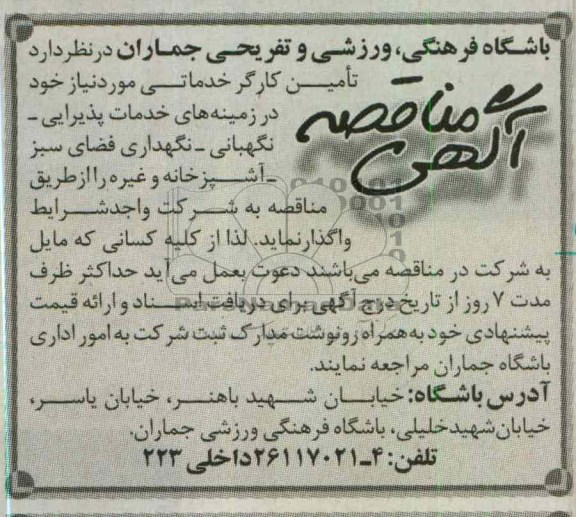 باشگاه فرهنگی، ورزشی و تفریحی جماران درنظردارد
آگهی مناقصه
تأمین کارگر خدماتی موردنیاز خود
در زمینه‌های خدمات پذیرایی ـ
نگهبانی ـ نگهداری فضای سبز
ـ آشپزخانه و غیره را ازطریق
مناقصه به شرکت واجدشرایط
واگذار نماید. لذا از کلیه کسانی که مایل
به شرکت در مناقصه می‌باشند دعوت بعمل می‌آید حداکثر ظرف
مدت ۷ روز از تاریخ درج آگهی برای دریافت اسناد و ارائه قیمت
پیشنهادی خود به همراه رونوشت مدارک ثبت شرکت به امور اداری
باشگاه جماران مراجعه نمایند.
آدرس باشگاه: خیابان شهید باهنر، خیابان یاسر،
خیابان شهید خلیلی، باشگاه فرهنگی ورزشی جماران.
تلفن: ۴ـ۲۶۱۱۷۰۲۱ داخلی ۲۲۳